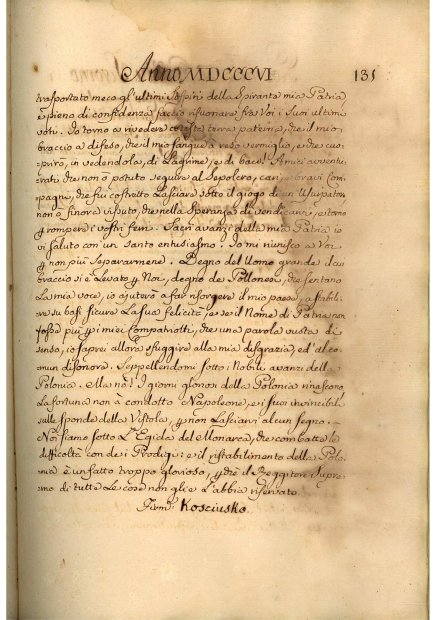 Anno MDCCCVI 131
trasportato meco gl'ultimi sospiri della Spirante mia Patria
e pieno di confidenza faccio risuonare fra Voi i Suoi ultimi
voti. Io torno a rivedere cotesta terra paterna, che il mio
braccio a difeso, che il mio sangue a reso vermiglio, e che cuo=
priro, in vedendola, di Lagrime, e di baci. Amici avventu=
rati che non ò potuto seguire al Sepolcro, cari, e bravi Com=
pagni, che fui costretto Lasciare sotto il giogo di un Usurpatore
non ò finora vissuto, che nella Speranza di vendicarvi, e torno
p romper i vostri ferri. Sacri avanzi della mia Patria io
vi saluto con un Santo entusiasmo. Io mi riunisco a Voi
p non più Separarmene. Degno del Uomo grande di cui
braccio si è Levato p Noi, degno de Pollonesi, che sentano
La mia voce, io ajuterò a far risorgere il mio paese, a stabili=
re su basi sicure La sua felicità, e se il Nome di Patria non
fosse più p i miei Compatriotti, che una parola vuota di
senso, io saprei allora sfuggire alla mia disgrazia, ed al co=
mun disonore. Seppellendomi sotto i Nobili avanzi della
Polonia. Ma nò! I giorni gloriosi della Polonia rinascono
La fortuna non à condotto Napoleone, e i suoi invincibili
sulle sponde della Vistola, p non Lasciarvi alcun segno.
Noi siamo sotto L'Egida del Monarca, che combatte le
difficoltà con dei Prodigi; e il ristabilimento della Polo=
nia è un fatto troppo glorioso, p chè il Reggitore Supre=
mo di tutte Le cose non glie L'abbia riservato.
Firm: Kosciusko.